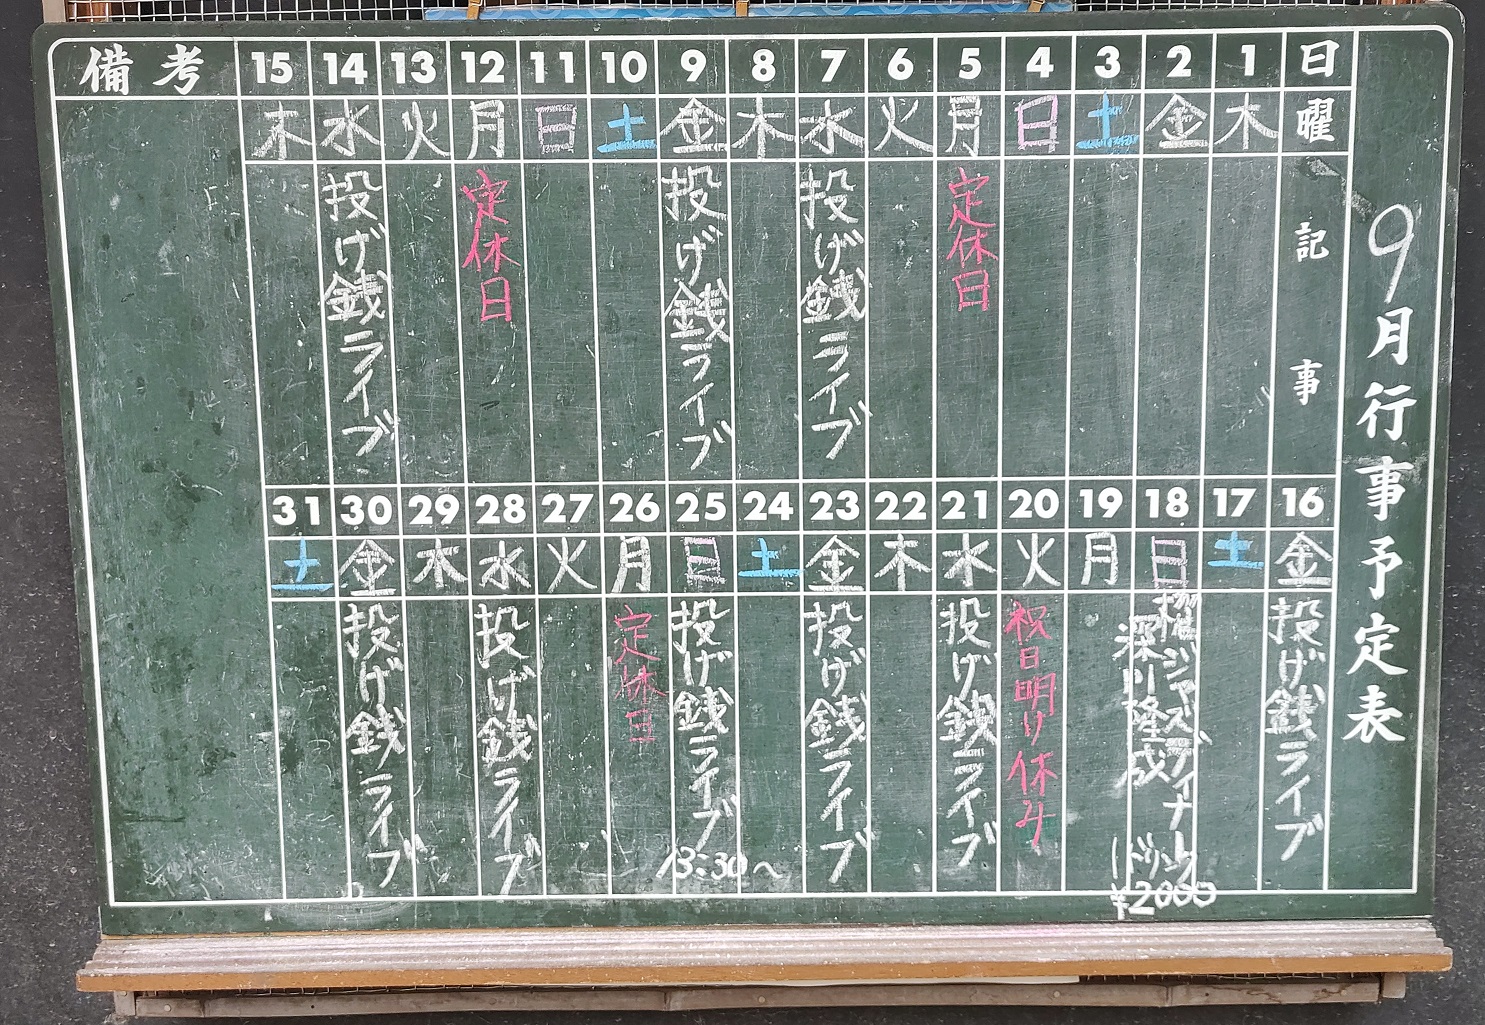 9月行事予定表
日 曜 記事
1 木
2 金
3 土
4 日
5 月 定休日
6 火
7 水 投げ銭ライブ
8 木
9 金 投げ銭ライブ
10 土
11 日
12 月 定休日
13 火
14 水 投げ銭ライブ
15 木
備考
16 金 投げ銭ライブ
17 土
18 日 ジャズディナー
深川隆成
1ドリンク
¥2000
19 月
20 火 祝日明け休み
21 水 投げ銭ライブ
22 木
23 金 投げ銭ライブ
24 土
25 日 投げ銭ライブ
13:30～
26 月 定休日
27 火
28 水 投げ銭ライブ
29 木
30 金 投げ銭ライブ
31 土